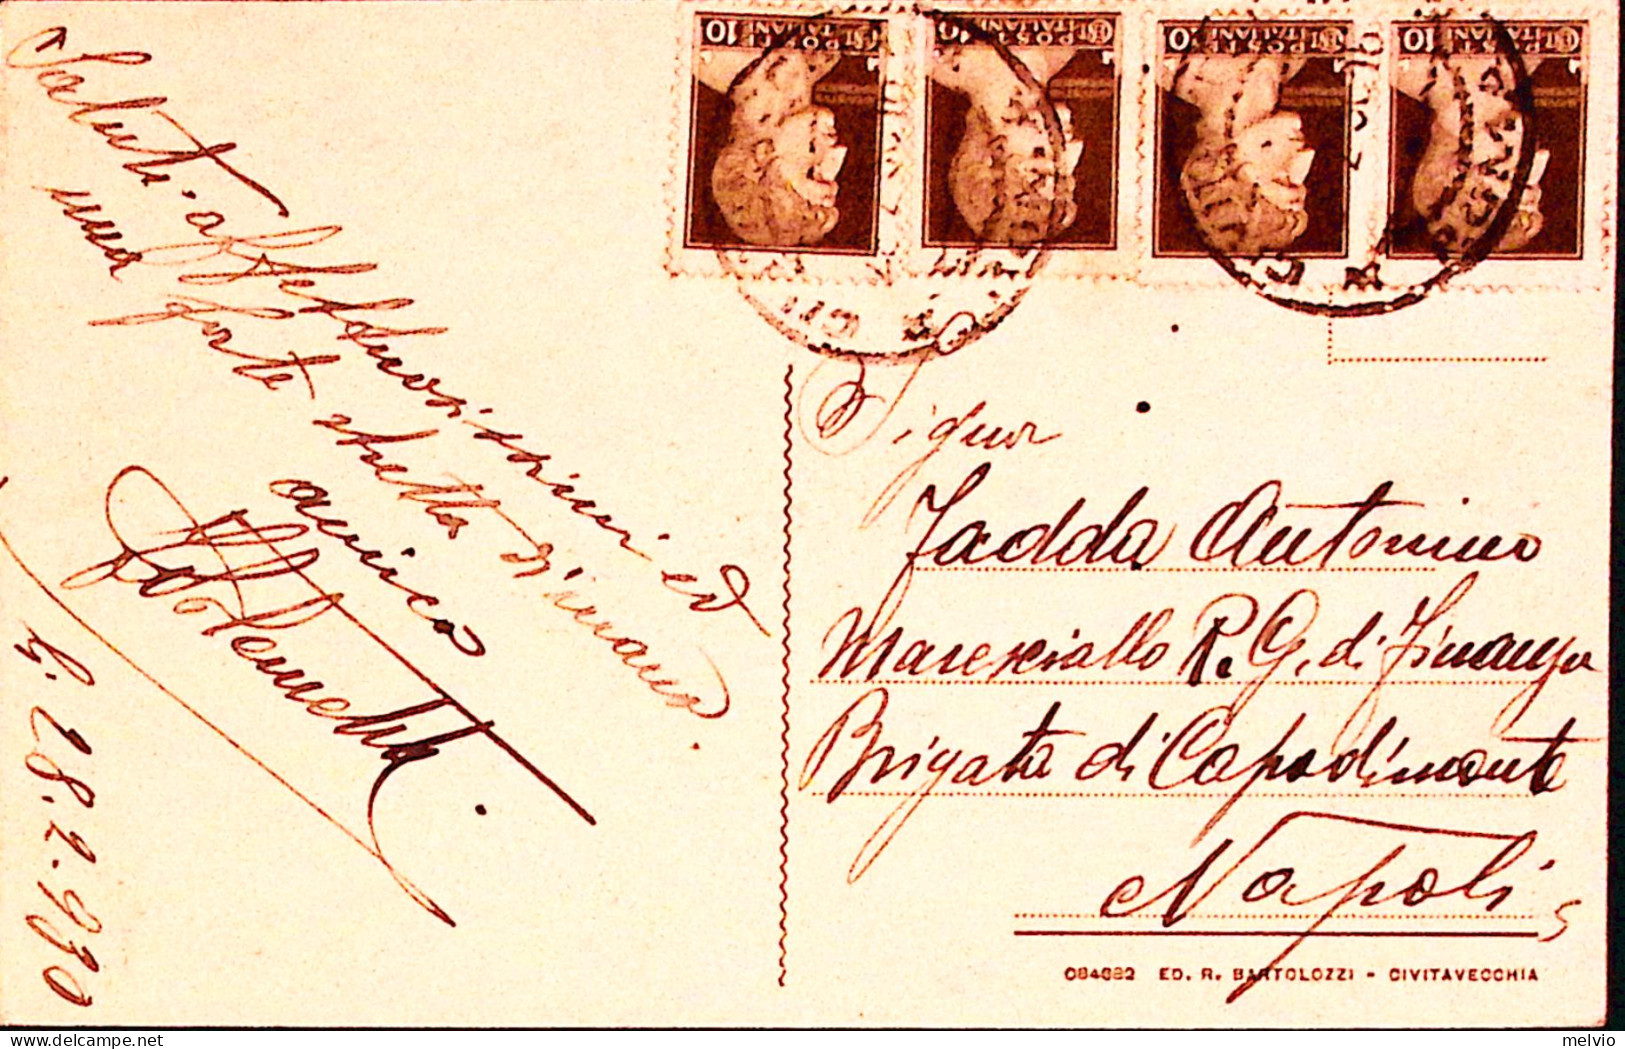 Saluti affettuosissimi ed
una forte stretta di mano.
amico
28.2.930
10
POSTE
ITALIANE
10
POSTE
ITALIANE
10
POSTE
ITALIANE
10
POSTE
ITALIANE
Signor
Fadda Antonino
Maresciallo R. G. di Finanza
Brigata di Capodimonte
Napoli
084682 ED. R. BARTOLOZZI - CIVITAVECCHIA
melvio